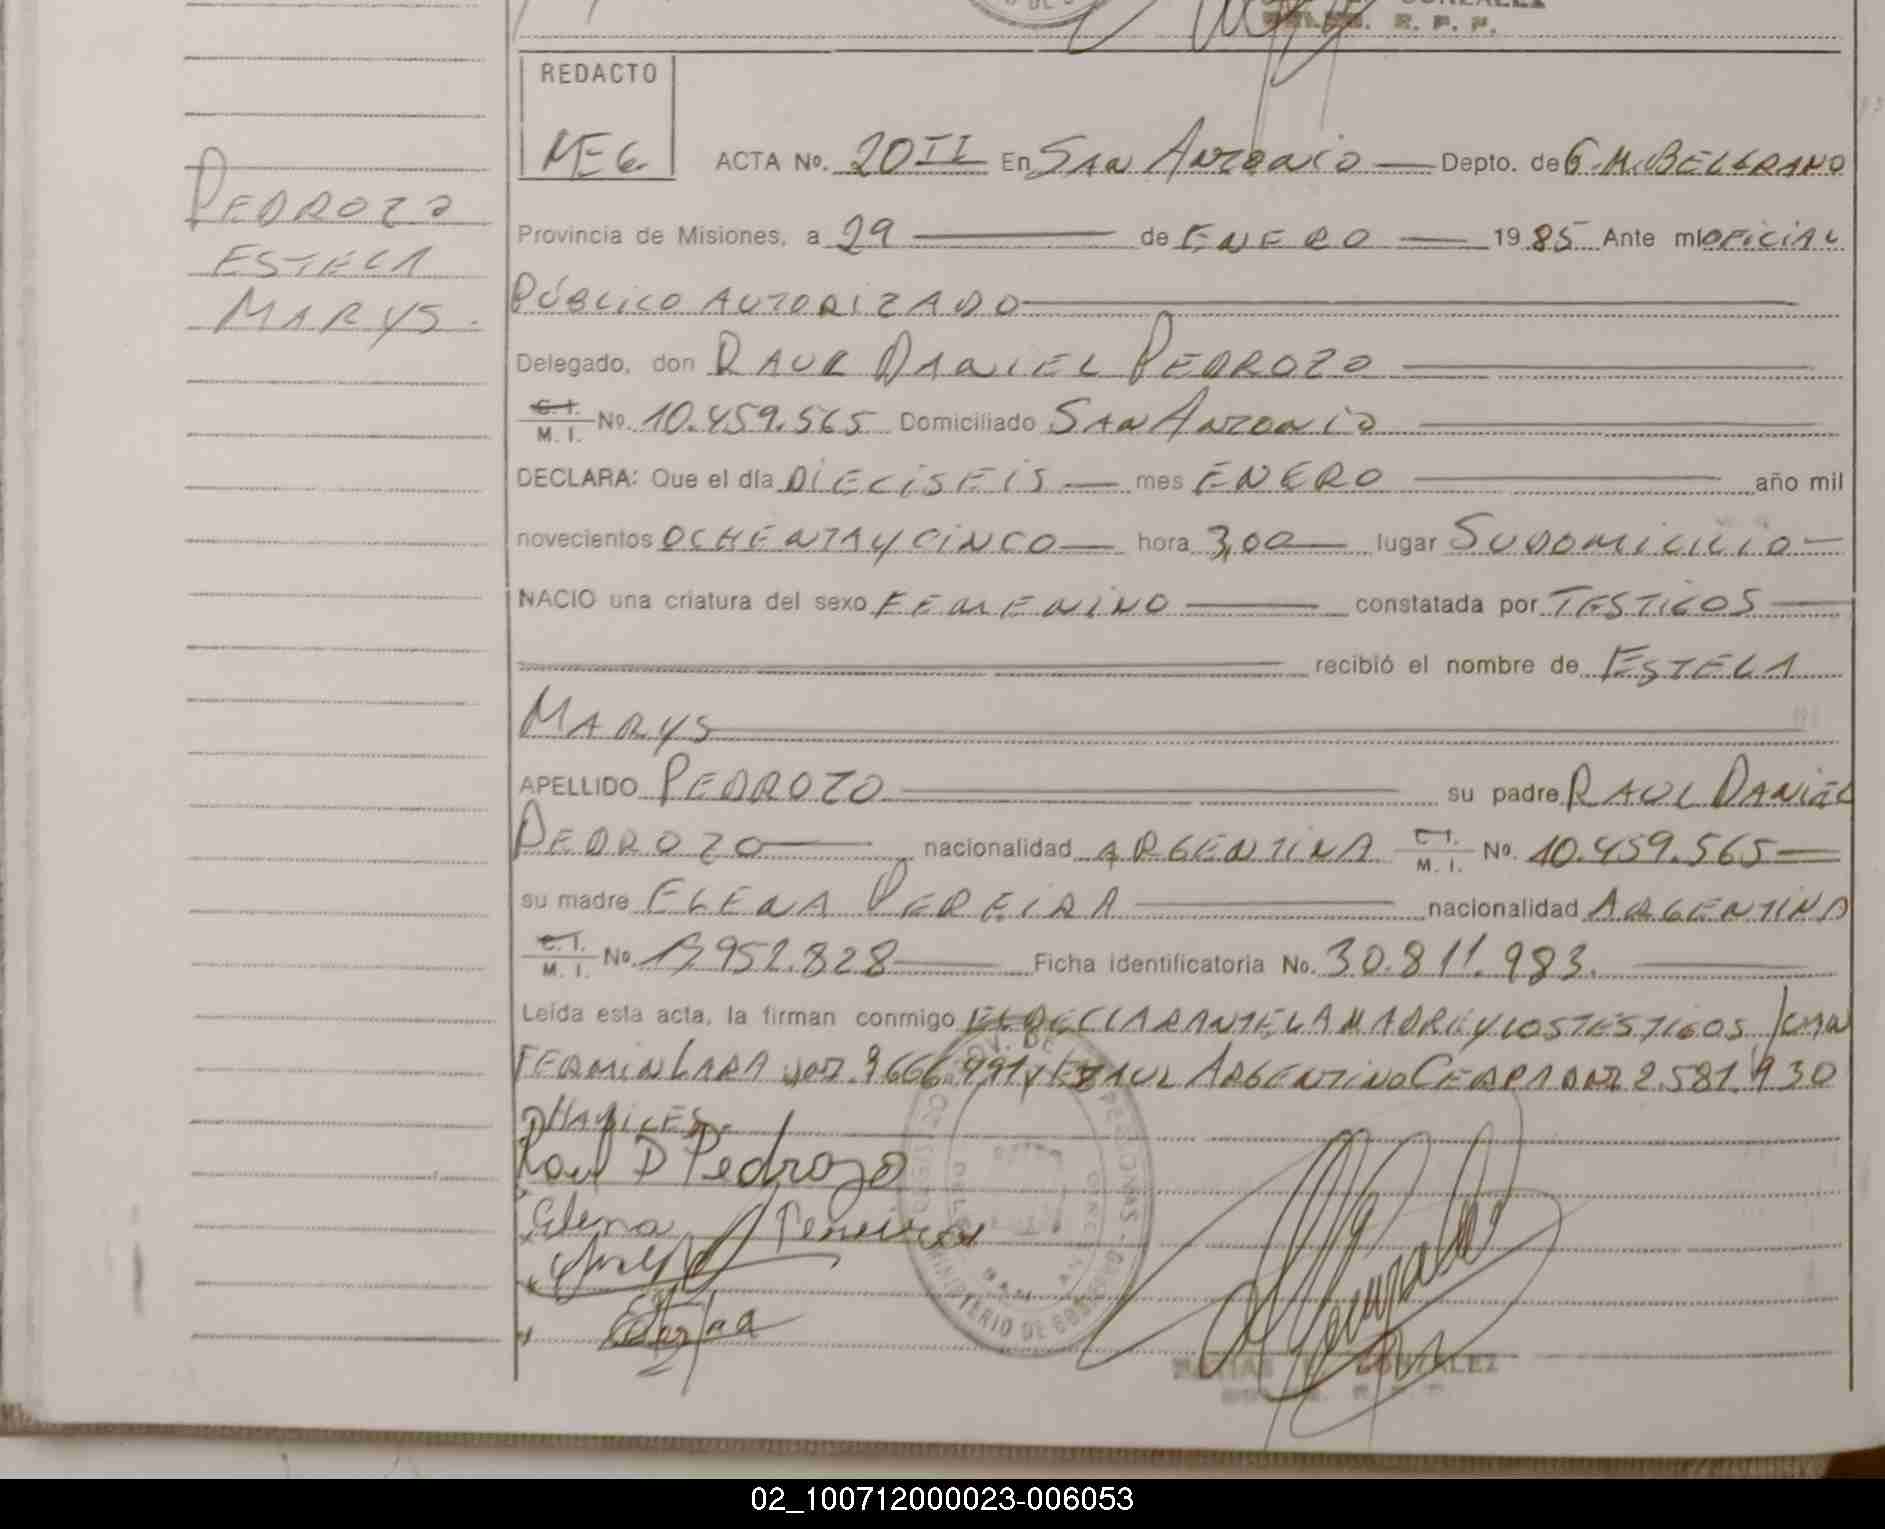 GONZALEZ
R. P. P.
REDACTO
MEG.
ACTA No. 20 II En SAN ANTONIO Depto. de G.M.BELGRANO
PEDROZO
ESTELA
MARYS.
Provincia de Misiones, a 29 de ENERO 1985 Ante mí OFICIAL
PÚBLICO AUTORIZADO
Delegado, don RAUL DANIEL PEDROZO
C.I.
M. I. No. 10.459.565 Domiciliado SAN ANTONIO
DECLARA: Que el día DIECISEIS mes ENERO año mil
novecientos OCHENTA Y CINCO hora 3,00 lugar SU DOMICILIO
NACIO una criatura del sexo FEMENINO constatada por TESTIGOS
recibió el nombre de ESTELA
MARYS
APELLIDO PEDROZO su padre RAUL DANIEL
PEDROZO nacionalidad ARGENTINA C.I. M. I. No. 10.459.565
su madre ELENA PEREIRA nacionalidad ARGENTINA
C.I.
M. I. No. 952.828 Ficha identificatoria No. 30.811.983.
Leída esta acta, la firman conmigo EL DECLARANTE LA MADRE Y LOS TESTIGOS
FERMIN LARA ARGENTINO 2.581.930
HABILES.
Raul D Pedrozo
Elena Pereira
MINISTERIO DE GOBIERNO
GONZALEZ
02_100712000023-006053